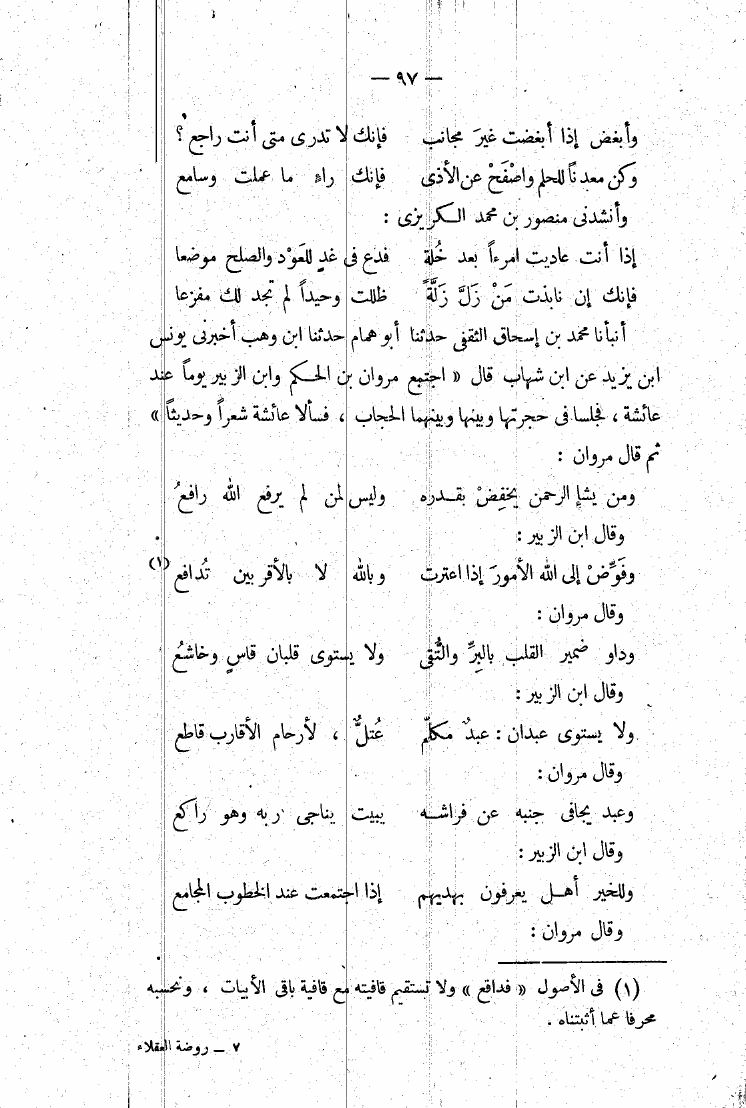 — ٩٧ —
وأبغض إذا أبغضت غيرَ مجانب فإنك لا تدرى متى أنت راجع؟
وكن معدناً للحلم واصْفَحْ عن الأذى فإنك راءٍ ما عملت وسامع
وأنشدنى منصور بن محمد الكريزى :
إذا أنت عاديت امرءاً بعد خُلة فدع فى غدٍ للعَوْد والصلح موضعا
فإنك إن نابذت مَنْ زَلَّ زَلَّةً ظللت وحيداً لم تجد لك مفزعا
أنبأنا محمد بن إسحاق الثقفى حدثنا أبو همام حدثنا ابن وهب أخبرنى يونس
ابن يزيد عن ابن شهاب قال « اجتمع مروان بن الحكم وابن الزبير يوماً عند
عائشة ، فجلسا فى حجرتها وبينها وبينهما الحجاب ، فسألا عائشة شعراً وحديثاً »
ثم قال مروان :
ومن يشإ الرحمن يخفِضْ بقدره وليس لمن لم يرفع الله رافعُ
وقال ابن الزبير :
وفَوِّضْ إلى الله الأمورَ إذا اعترت وبالله لا بالأقربين تُدافع (١)
وقال مروان :
وداو ضمير القلب بالبِرِّ والتُّقى ولا يستوى قلبان قاسٍ وخاشعُ
وقال ابن الزبير :
ولا يستوى عبدان : عبدٌ مكلّم عُتلٌّ ، لأرحام الأقارب قاطع
وقال مروان :
وعبد يجافى جنبه عن فراشه يبيت يناجى ربه وهو راكع
وقال ابن الزبير :
وللخير أهل يعرفون بهديهم إذا اجتمعت عند الخطوب المجامع
وقال مروان :
(١) فى الأصول « فدافع » ولا تستقيم قافيته مع قافية باقى الأبيات ، ونحسبه
محرفا عما أثبتناه .
٧ ــ روضة العقلاء